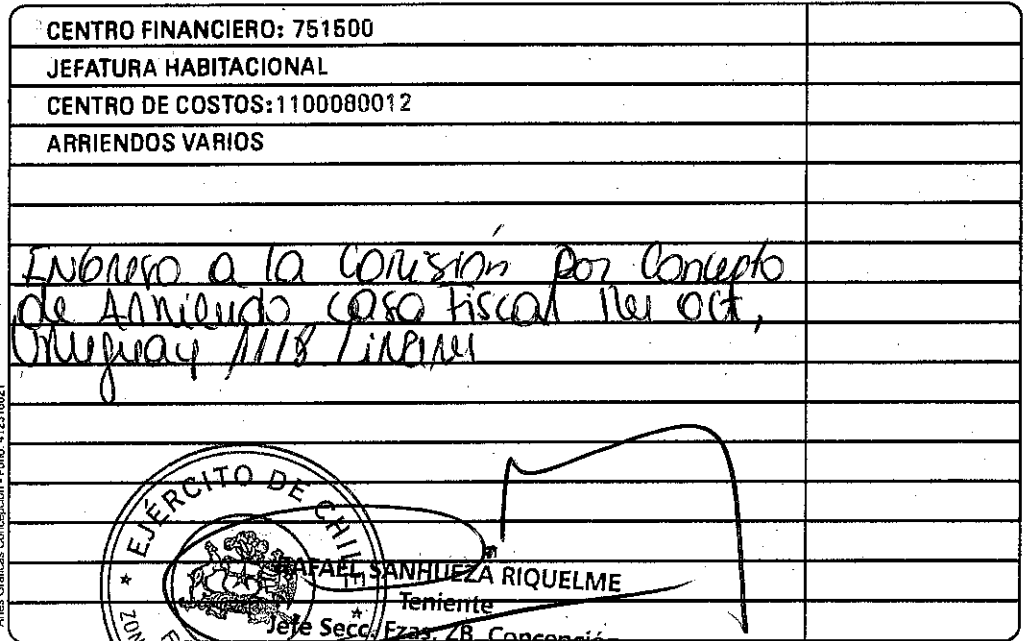 CENTRO FINANCIERO: 751500
JEFATURA HABITACIONAL
CENTRO DE COSTOS:1100080012
ARRIENDOS VARIOS
Ingreso a la Comisión por Concepto
de Arriendo casa fiscal mes oct,
Uruguay 1118 Linares
EJÉRCITO DE CHILE
RAFAEL SANHUEZA RIQUELME
Teniente
Jefe Secc. Fzas. ZB. Concepción
Artes Gráficas Concepción - Fono: 412318021